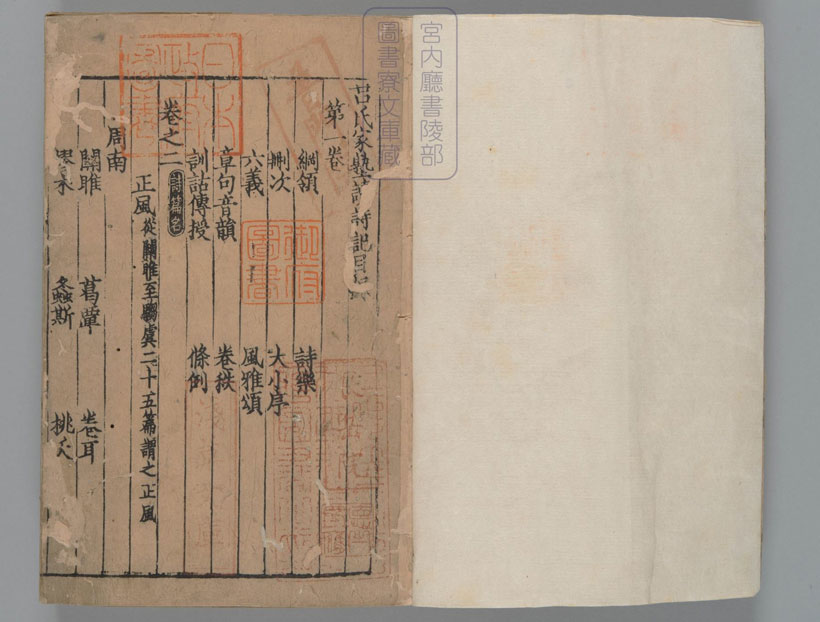 呂氏家塾讀詩記目錄
第一卷
綱領 詩樂
刪次 大小序
六義 風雅頌
章句音韻 卷秩
訓詁傳授 條例
卷之二
正風 從關雎至騶虞二十五篇謂之正風
周南
關雎 葛蕈 卷耳
螽斯 桃夭
御府圖書
宮内廳書陵部
圖書寮文庫藏